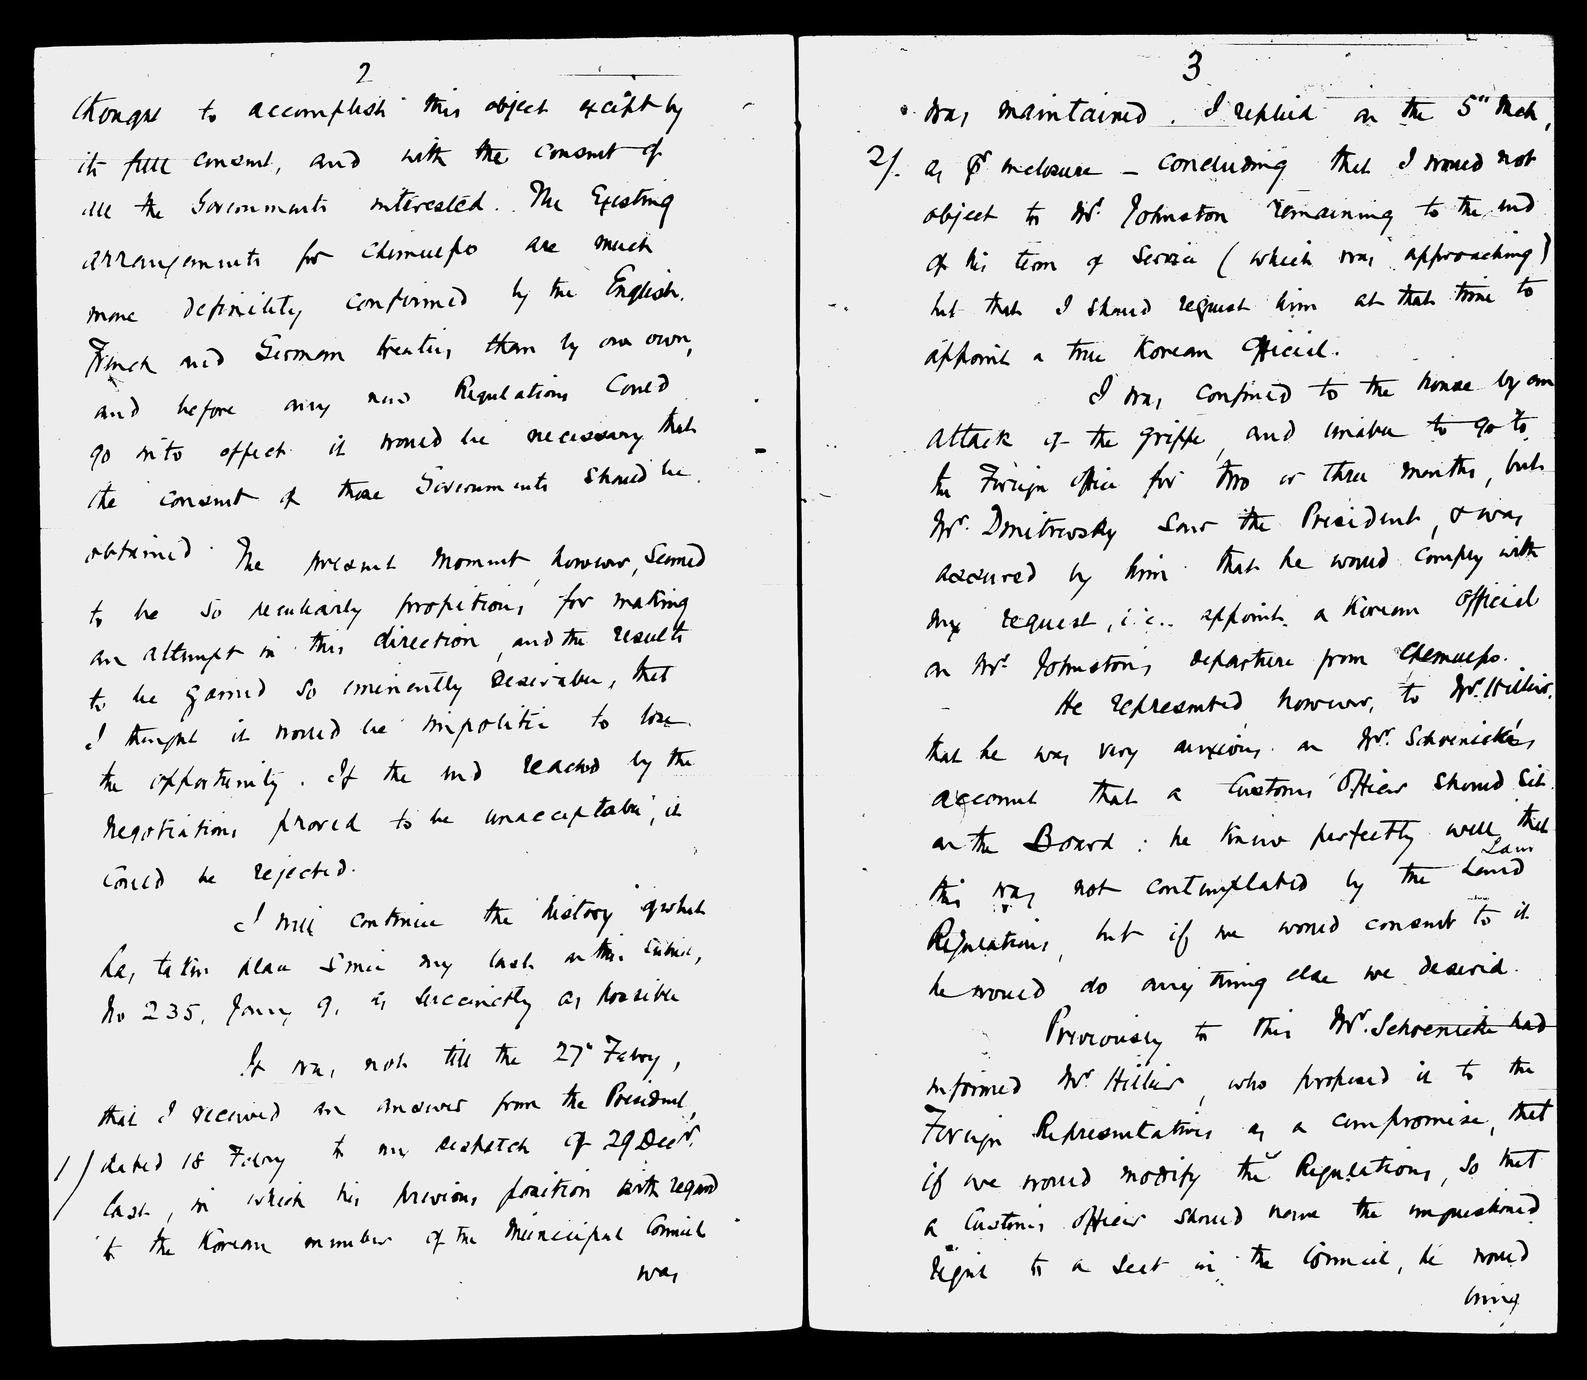 2
thought to accomplish this object except by
its full consent, and with the consent of
all the Governments interested. The Existing
arrangements for Chemulpo are much
more definitely confirmed by the English,
French and German treaties than by our own,
and before any new Regulations could
go into effect it would be necessary that
the consent of those Governments should be
obtained. The present moment, however, seemed
to be so peculiarly propitious for making
an attempt in this direction, and the results
to be gained so eminently desirable, that
I thought it would be impolitic to lose
the opportunity. If the end reached by the
negotiations proved to be unacceptable, it
could be rejected.
I will continue the history of what
has taken place since my last on this subject,
No 235, Jany 9, as succinctly as possible
It was not till the 27" Febry,
that I received an answer from the President,
1/ dated 18 Febry to my despatch of 29 Decr.
last, in which his previous position with regard
to the Korean member of the Municipal Council
was
3
was maintained. I replied on the 5" Mch,
2/. as pr enclosure – concluding that I would not
object to Mr. Johnston remaining to the end
of his term of service (which was approaching)
but that I should request him at that time to
appoint a true Korean Official.
I was confined to the house by an
attack of the grippe, and unable to go to
the Foreign office for two or three months, but
Mr. Dmitrevsky saw the President, & was
assured by him that he would comply with
my request, i.e. appoint a Korean Official
on Mr. Johnston's departure from Chemulpo.
He represented, however, to Mr. Hillier,
that he was very anxious on Mr. Schoenicke's
account that a Customs Officer should sit
on the Board: he knew perfectly well that
Land
this was not contemplated by the Land
Regulations, but if we would consent to it
he would do any thing else we desired.
Previously to this Mr. Schoenicke had
informed Mr. Hillier, who proposed it to the
Foreign Representatives as a compromise, that
if we would modify the Regulations, so that
a Customs Officer should have the unquestioned
right to a seat in the Council, he would
bring